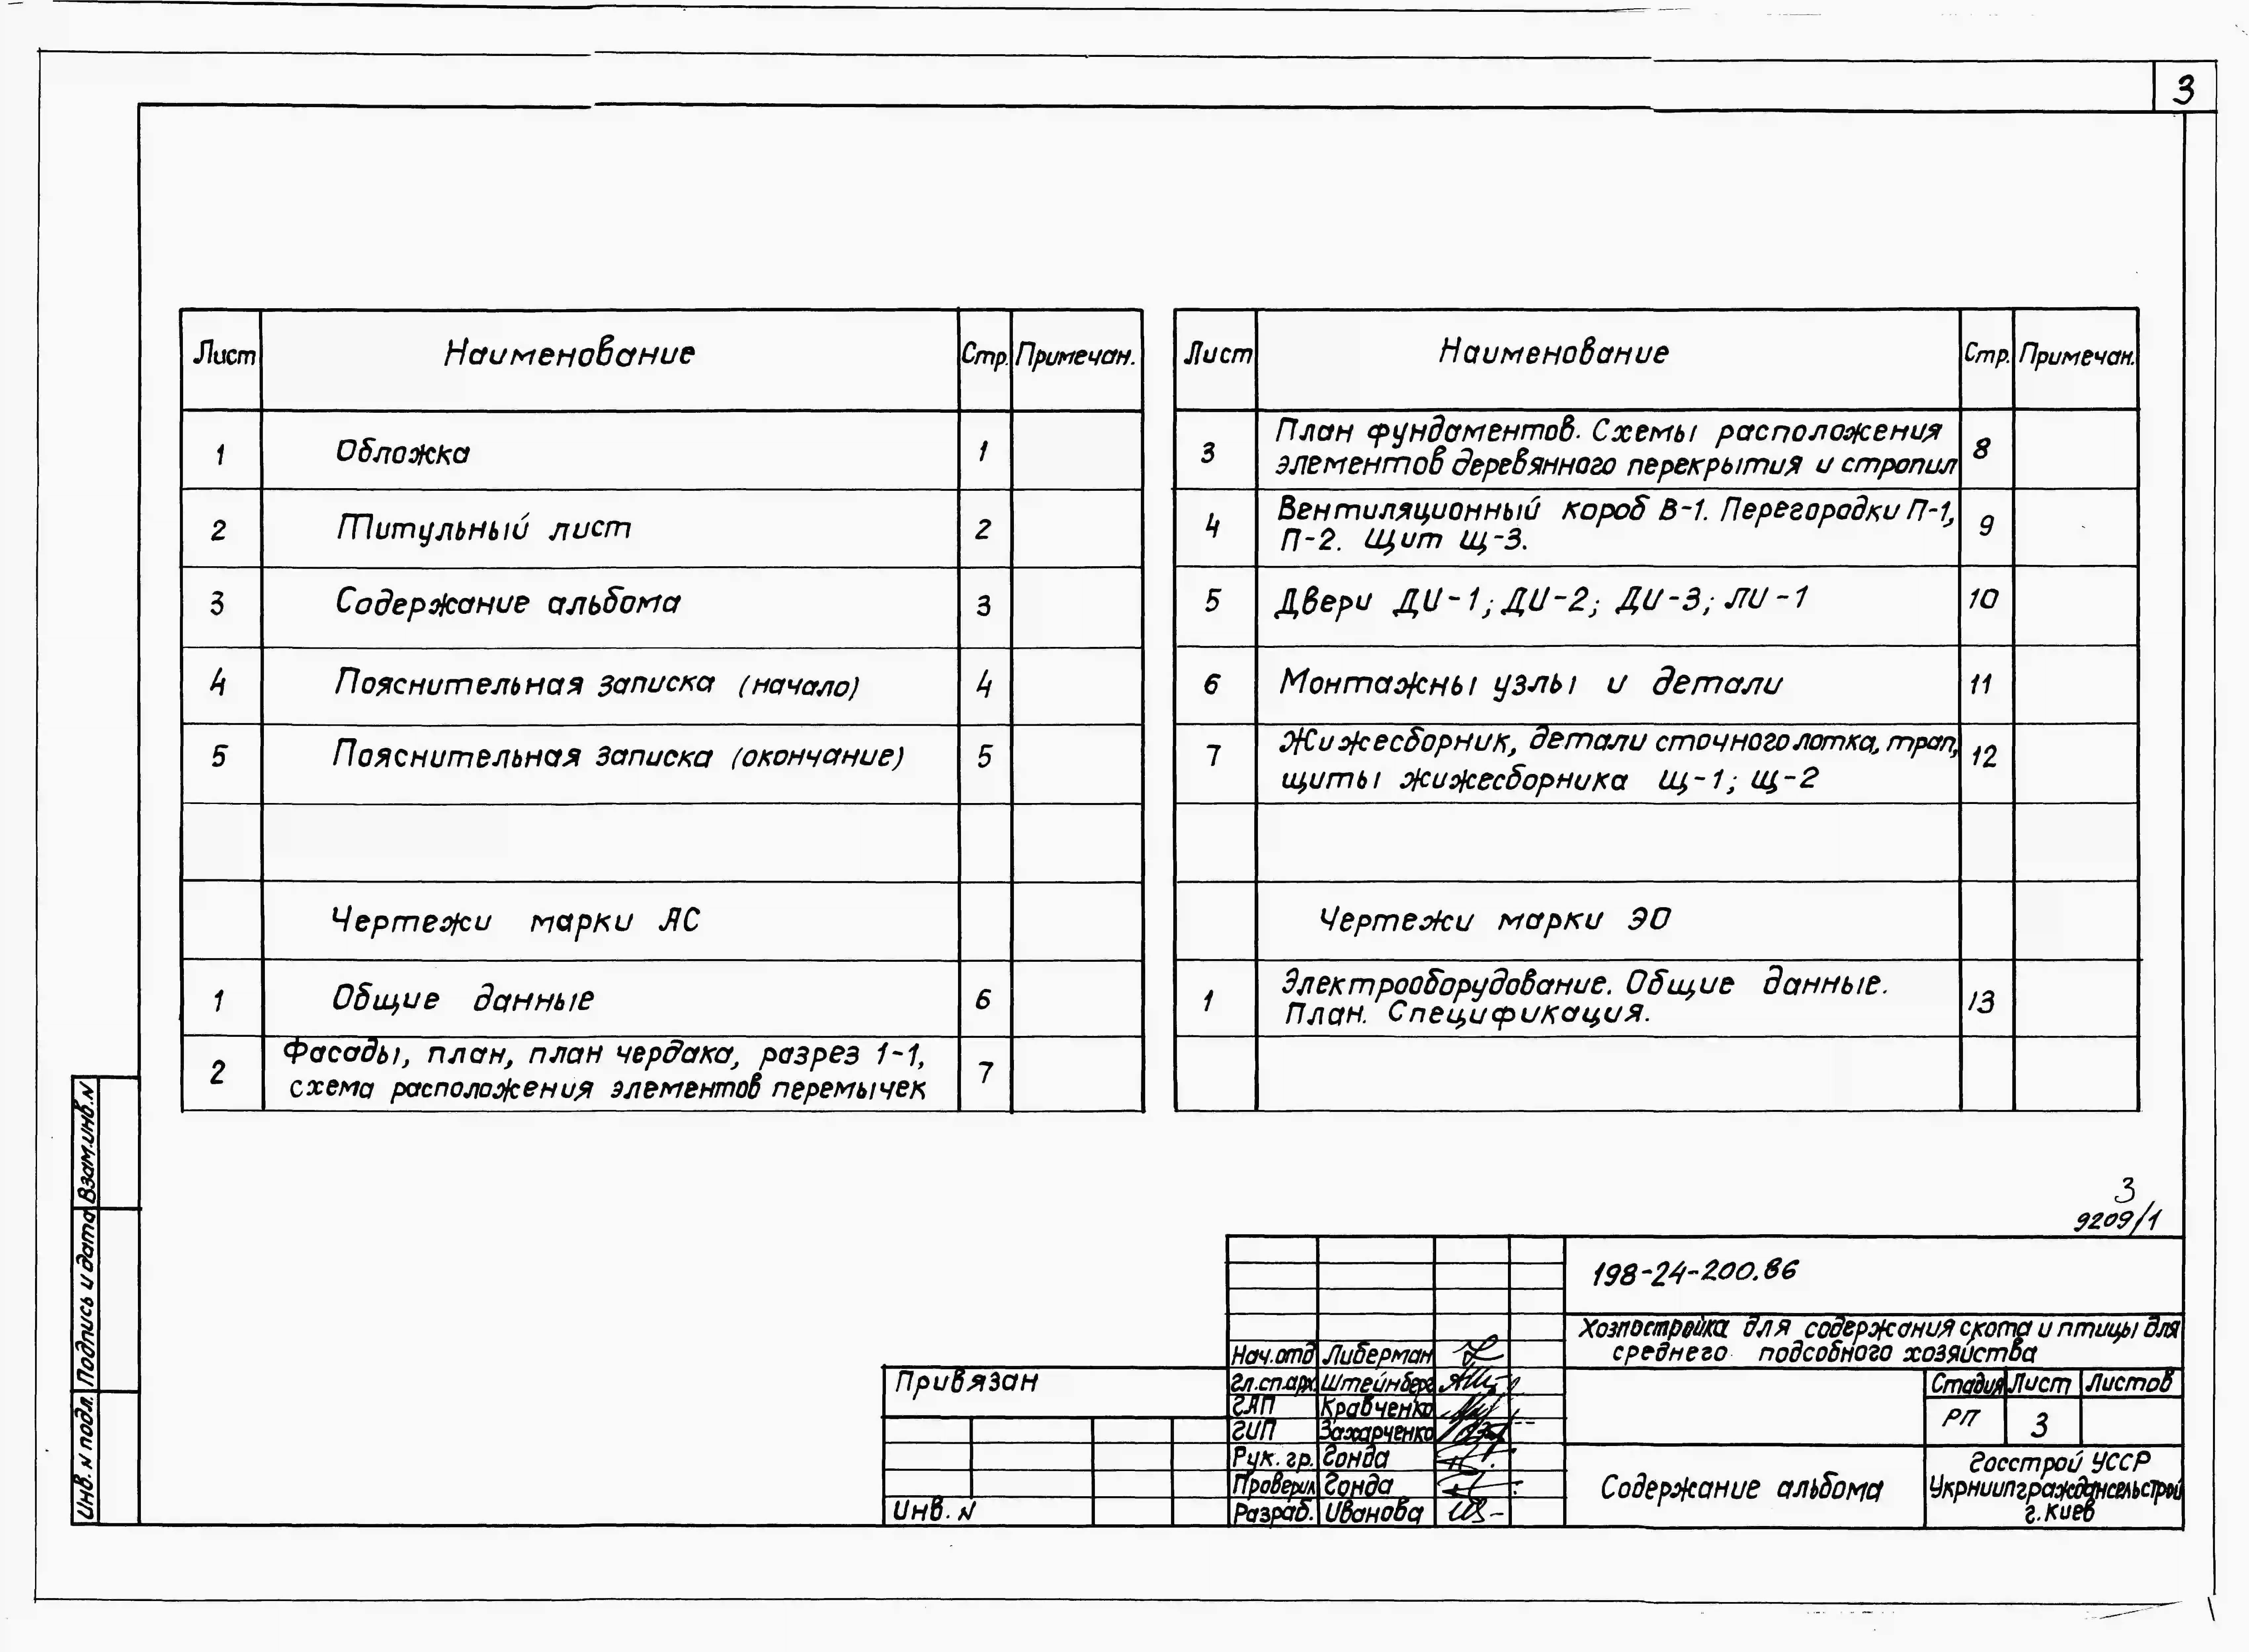 3
Лист Наименование Стр. Примечан.
1 Обложка 1
2 Титульный лист 2
3 Содержание альбома 3
4 Пояснительная записка (начало) 4
5 Пояснительная записка (окончание) 5
Чертежи марки АС
1 Общие данные 6
2 Фасады, план, план чердака, разрез 1-1, 7
схема расположения элементов перемычек
Лист Наименование Стр. Примечан.
3 План фундаментов. Схемы расположения 8
элементов деревянного перекрытия и стропил
4 Вентиляционный короб В-1. Перегородки П-1, 9
П-2. Щит Щ-3.
5 Двери ДИ-1; ДИ-2; ДИ-3; ЛИ-1 10
6 Монтажны узлы и детали 11
7 Жижесборник, детали сточного лотка, трап, 12
щиты жижесборника Щ-1; Щ-2
Чертежи марки ЭО
1 Электрооборудование. Общие данные. 13
План. Спецификация.
Взам.инв.N
Подпись и дата
Инв. N подл.
3
9209/1
198-24-200.86
Хозпостройка для содержания скота и птицы для
среднего подсобного хозяйства
Привязан
Инв. N
Нач.отд Либерман
Гл.сп.арх. Штейнберг
ГАП Кравченко
ГИП Захарченко
Рук. гр. Гонда
Проверил Гонда
Разраб. Иванова
Стадия Лист Листов
РП 3
Содержание альбома
Госстрой УССР
Укрниипграждансельстрой
г. Киев